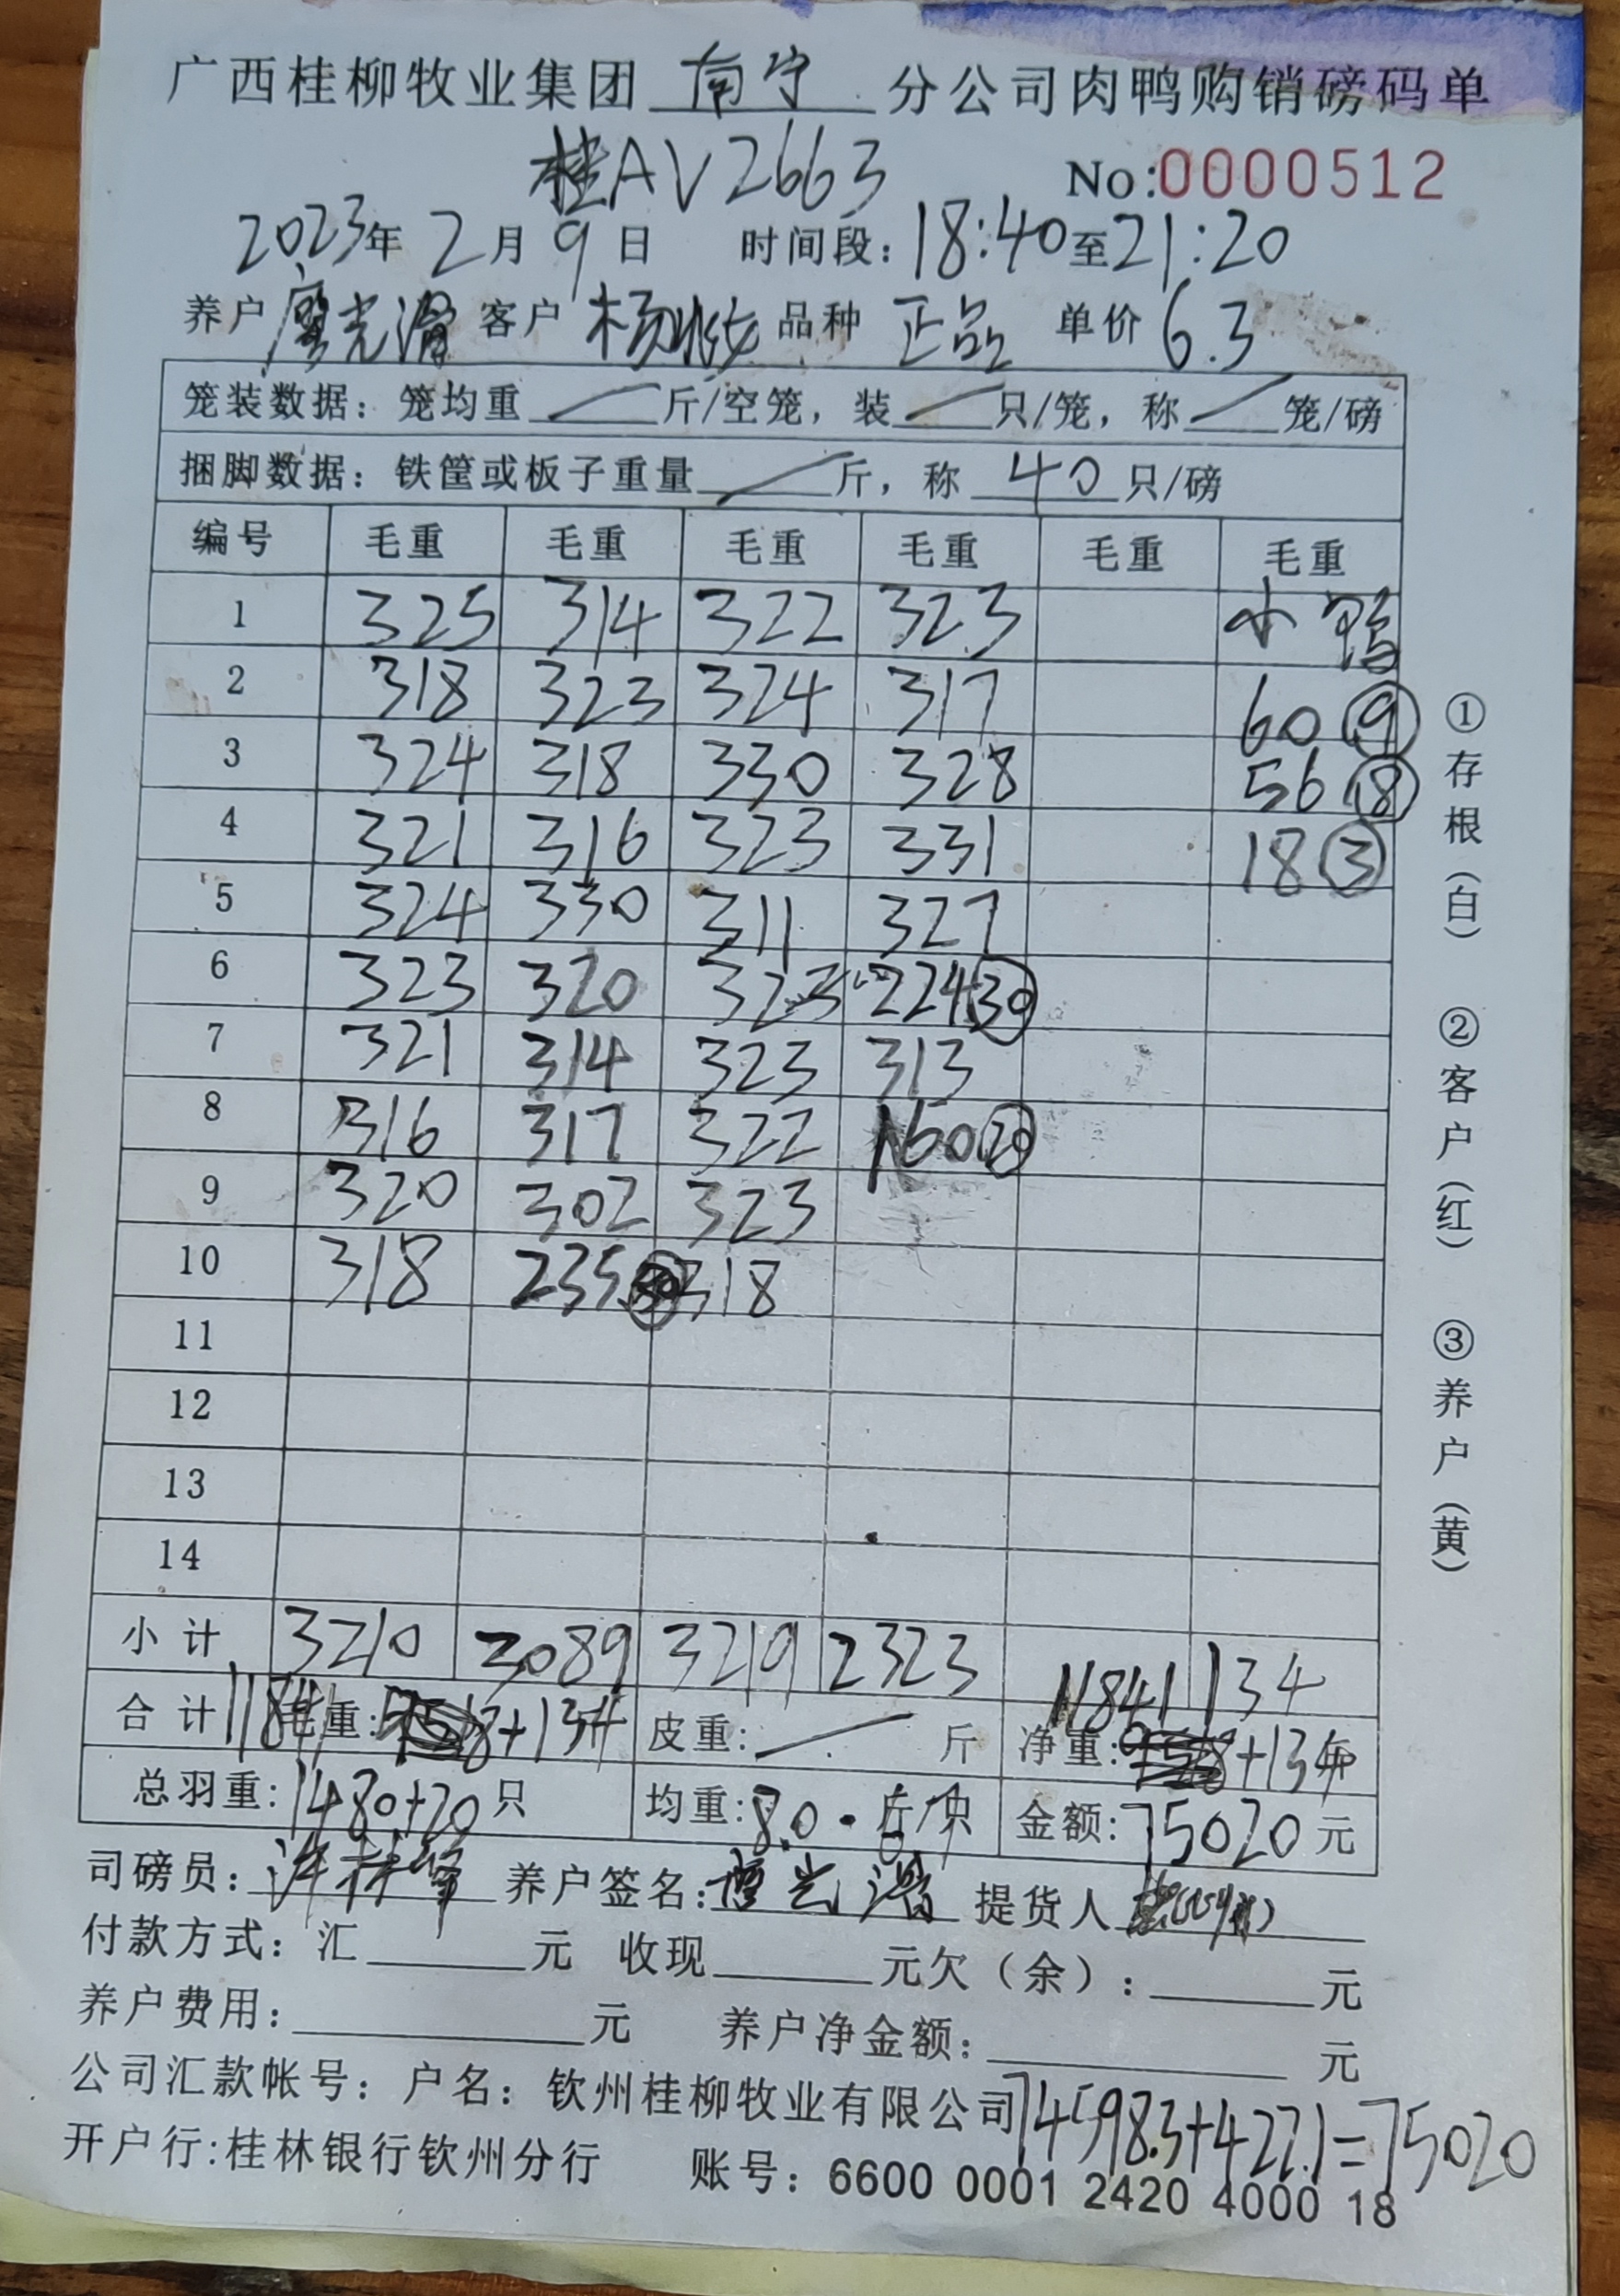 广西桂柳牧业集团 南宁 分公司肉鸭购销磅码单
桂AV2663 No:0000512
2023年 2月 9日 时间段:18:40至21:20
养户 廖光滑 客户 杨 品种 正品 单价 6.3
笼装数据:笼均重 / 斤/空笼,装 / 只/笼,称 / 笼/磅
捆脚数据:铁筐或板子重量 / 斤,称 40 只/磅
编号 毛重 毛重 毛重 毛重 毛重 毛重
1 325 314 322 323 小鸭
2 318 323 324 317 60 ⑨
3 324 318 330 328 56 ⑧
4 321 316 323 331 18 ③
5 324 330 311 327
6 323 320 323 224 ㉚
7 321 314 323 313
8 316 317 322 160 ⑳
9 320 302 323
10 318 235 ㉚ 318
11
12
13
14
小计 3210 3089 3219 2323 11841 134
合计 11841 毛重: +134 皮重: / 斤 净重: +134斤
总羽重:1480+20只 均重:8.0斤/只 金额:75020元
司磅员:许林峰 养户签名:廖光滑 提货人
付款方式:汇 元 收现 元欠(余): 元
养户费用: 元 养户净金额: 元
公司汇款帐号:户名:钦州桂柳牧业有限公司
74598.3+422.1=75020
开户行:桂林银行钦州分行 账号:6600 0001 2420 4000 18
①存根(白) ②客户(红) ③养户(黄)